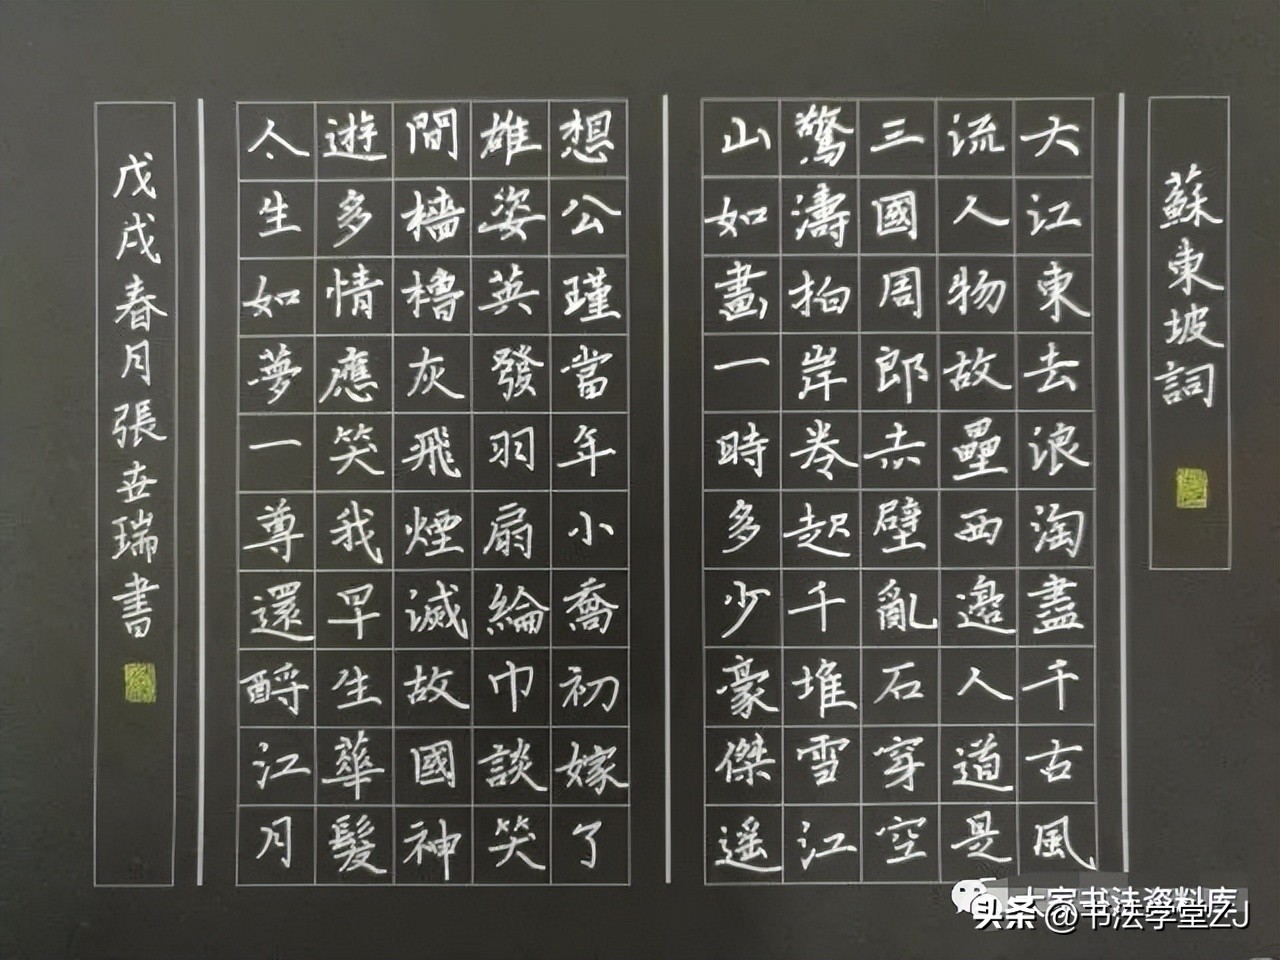 蘇東坡詞
大江東去浪淘盡千古風
流人物故壘西邊人道是
三國周郎赤壁亂石穿空
驚濤拍岸卷起千堆雪江
山如畫一時多少豪傑遥
想公瑾當年小喬初嫁了
雄姿英發羽扇綸巾談笑
間檣櫓灰飛煙滅故國神
遊多情應笑我早生華髮
人生如夢一尊還酹江月
戊戌春月張世瑞書
大家书法资料库
头条@书法学堂ZJ